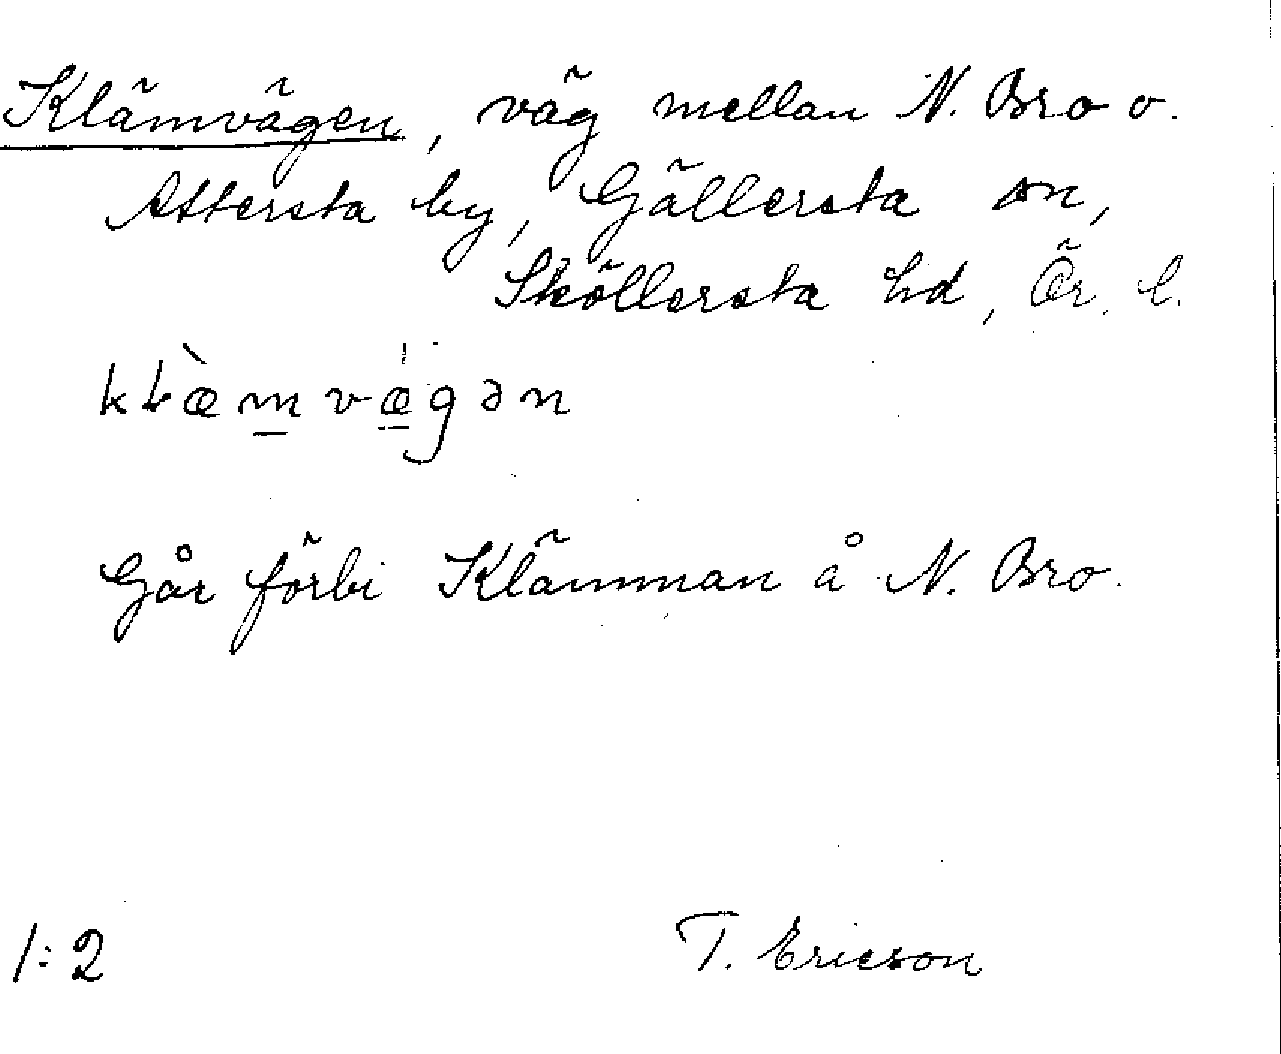 Klämvägen, väg mellan N. Bro o.
Attersta by, Gällersta sn,
Sköllersta hd, Ör. l.
kɫæ̀m̲vǽ̲gən
Går förbi Klämman å N. Bro.
1:2
T. Ericson